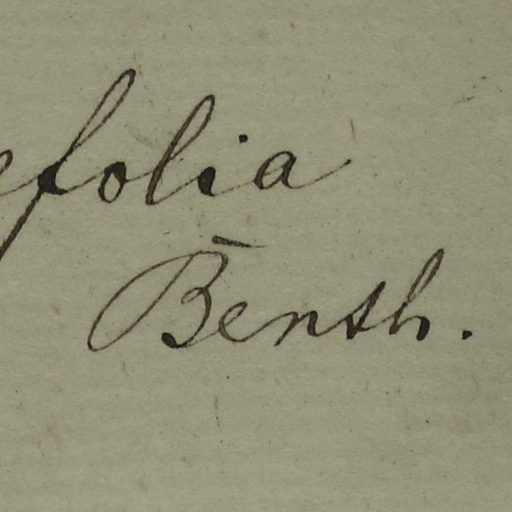 efolia
Benth.